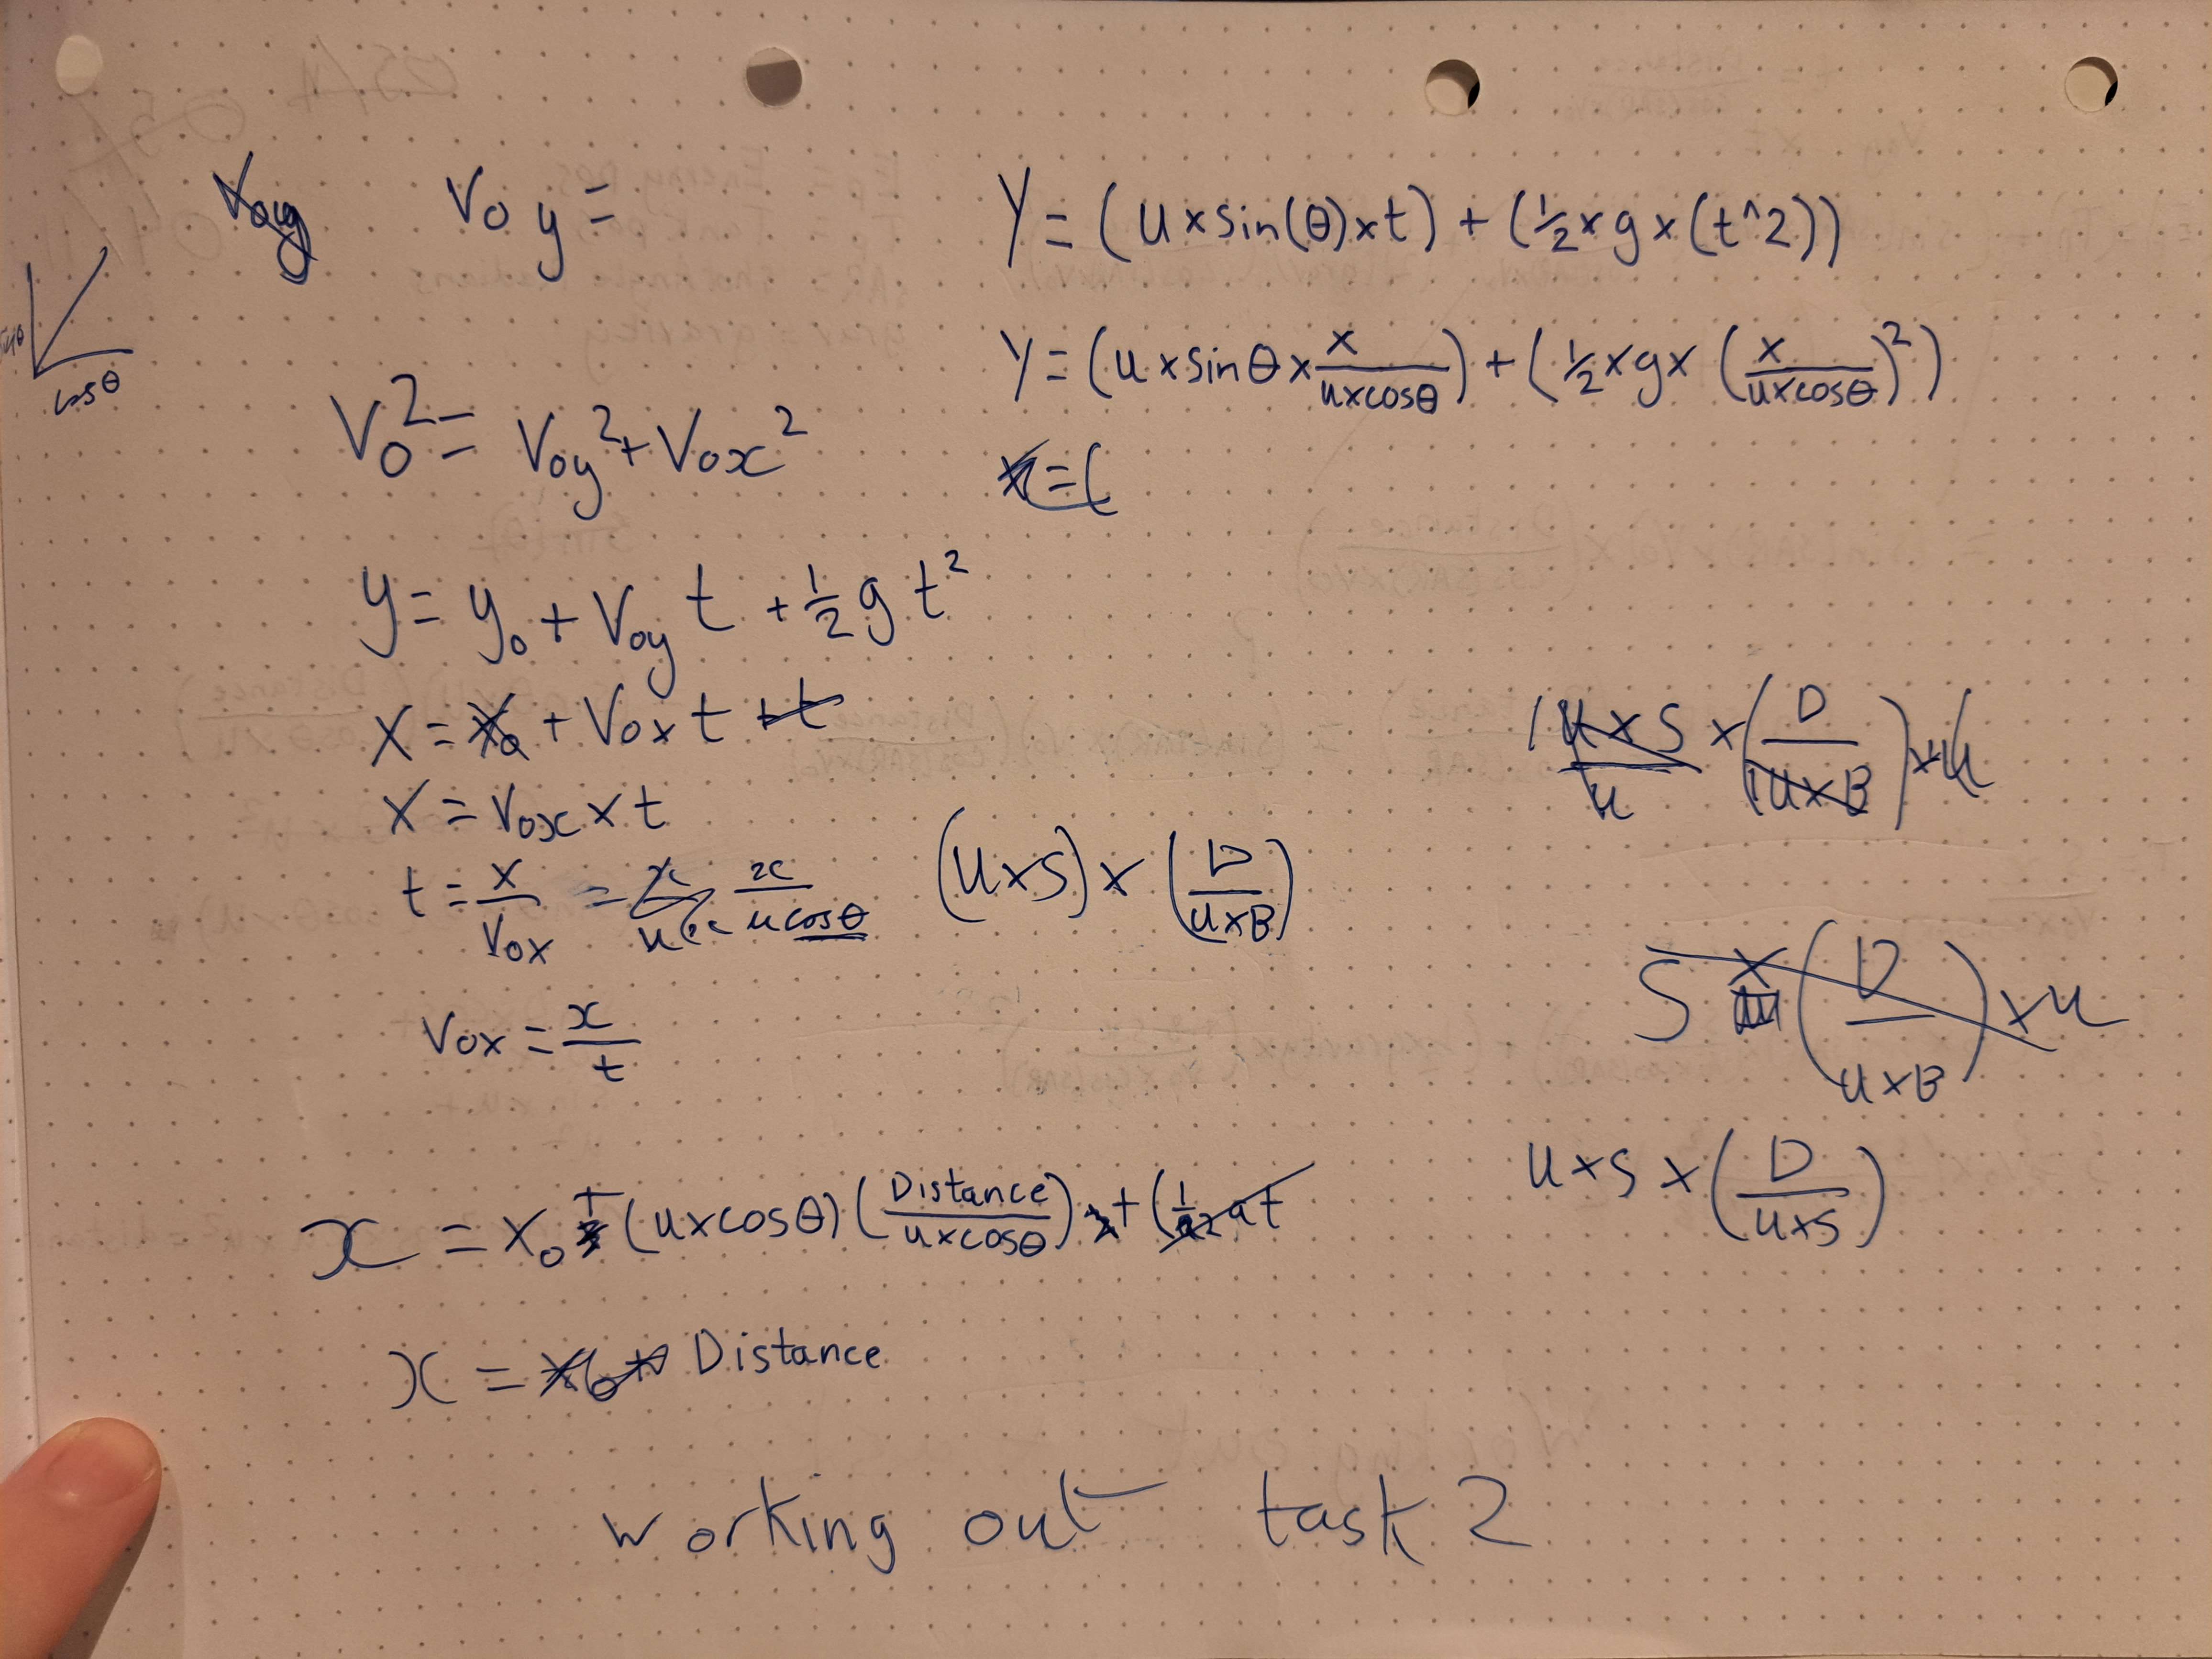 Voy Voy =
sinθ
cosθ
V₀² = Voy² + Vox²
y = y₀ + Voy t + ½ g t²
x = x₀ + Vox t + t
x = Vox × t
t = x/Vox = x/u cosθ
Vox = x/t
x = x₀ + (u×cosθ) (Distance/u×cosθ) + (½ at
x = x₀ + Distance
Y = (u×sin(θ)×t) + (½×g×(t^2))
Y = (u×sinθ×x/u×cosθ) + (½×g×(x/u×cosθ)²)
x = (
(U×S) × (D/U×B)
U×S/u × (D/U×B) × u
S × (D/U×B) × u
U×S × (D/U×S)
working out task 2